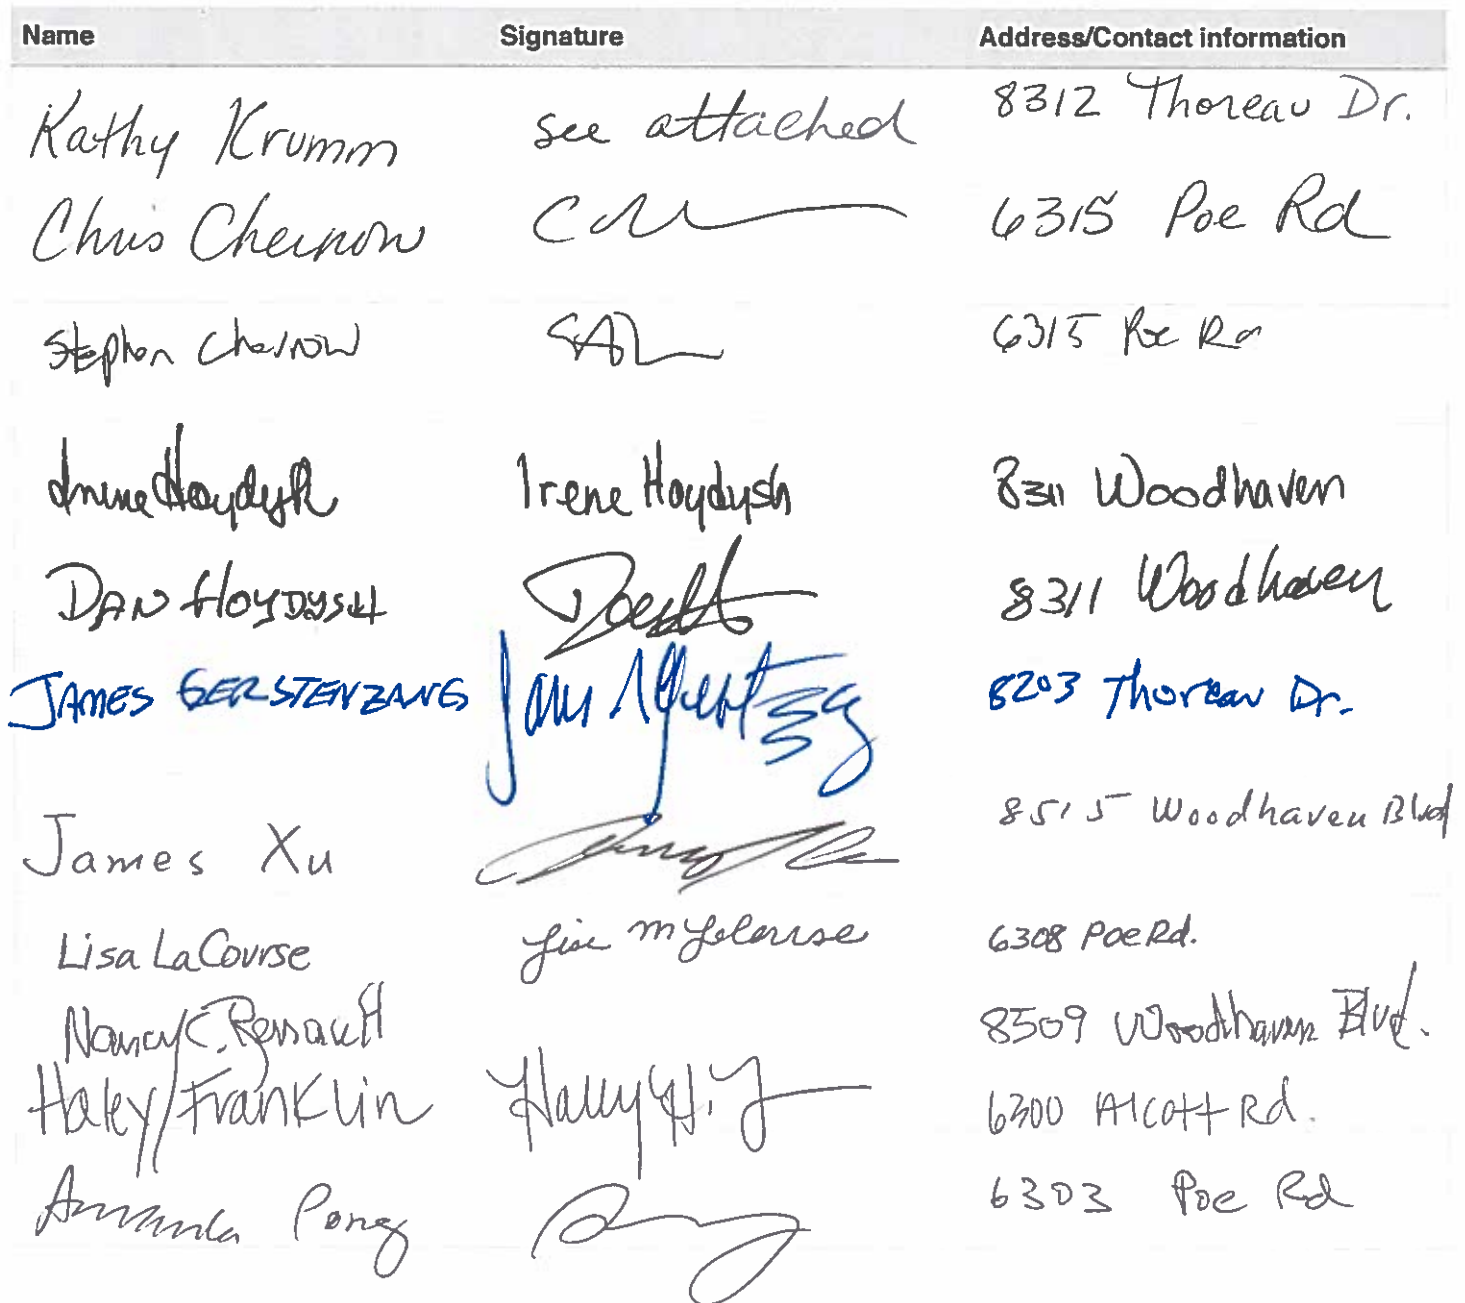 Name Signature Address/Contact information
Kathy Krumm see attached 8312 Thoreau Dr.
Chris Chernow 6315 Poe Rd
Stephen Chernow 6315 Poe Rd
Irene Hoydysh Irene Hoydysh 8311 Woodhaven
DAN HOYDYSH 8311 Woodhaven
JAMES GERSTENZANG 8203 Thoreau Dr.
James Xu 8515 Woodhaven Blvd
Lisa LaCourse Lisa M LaCourse 6308 Poe Rd.
Nancy C. 8509 Woodhaven Blvd.
Haley Franklin 6300 Alcott Rd.
Amanda Pong 6303 Poe Rd